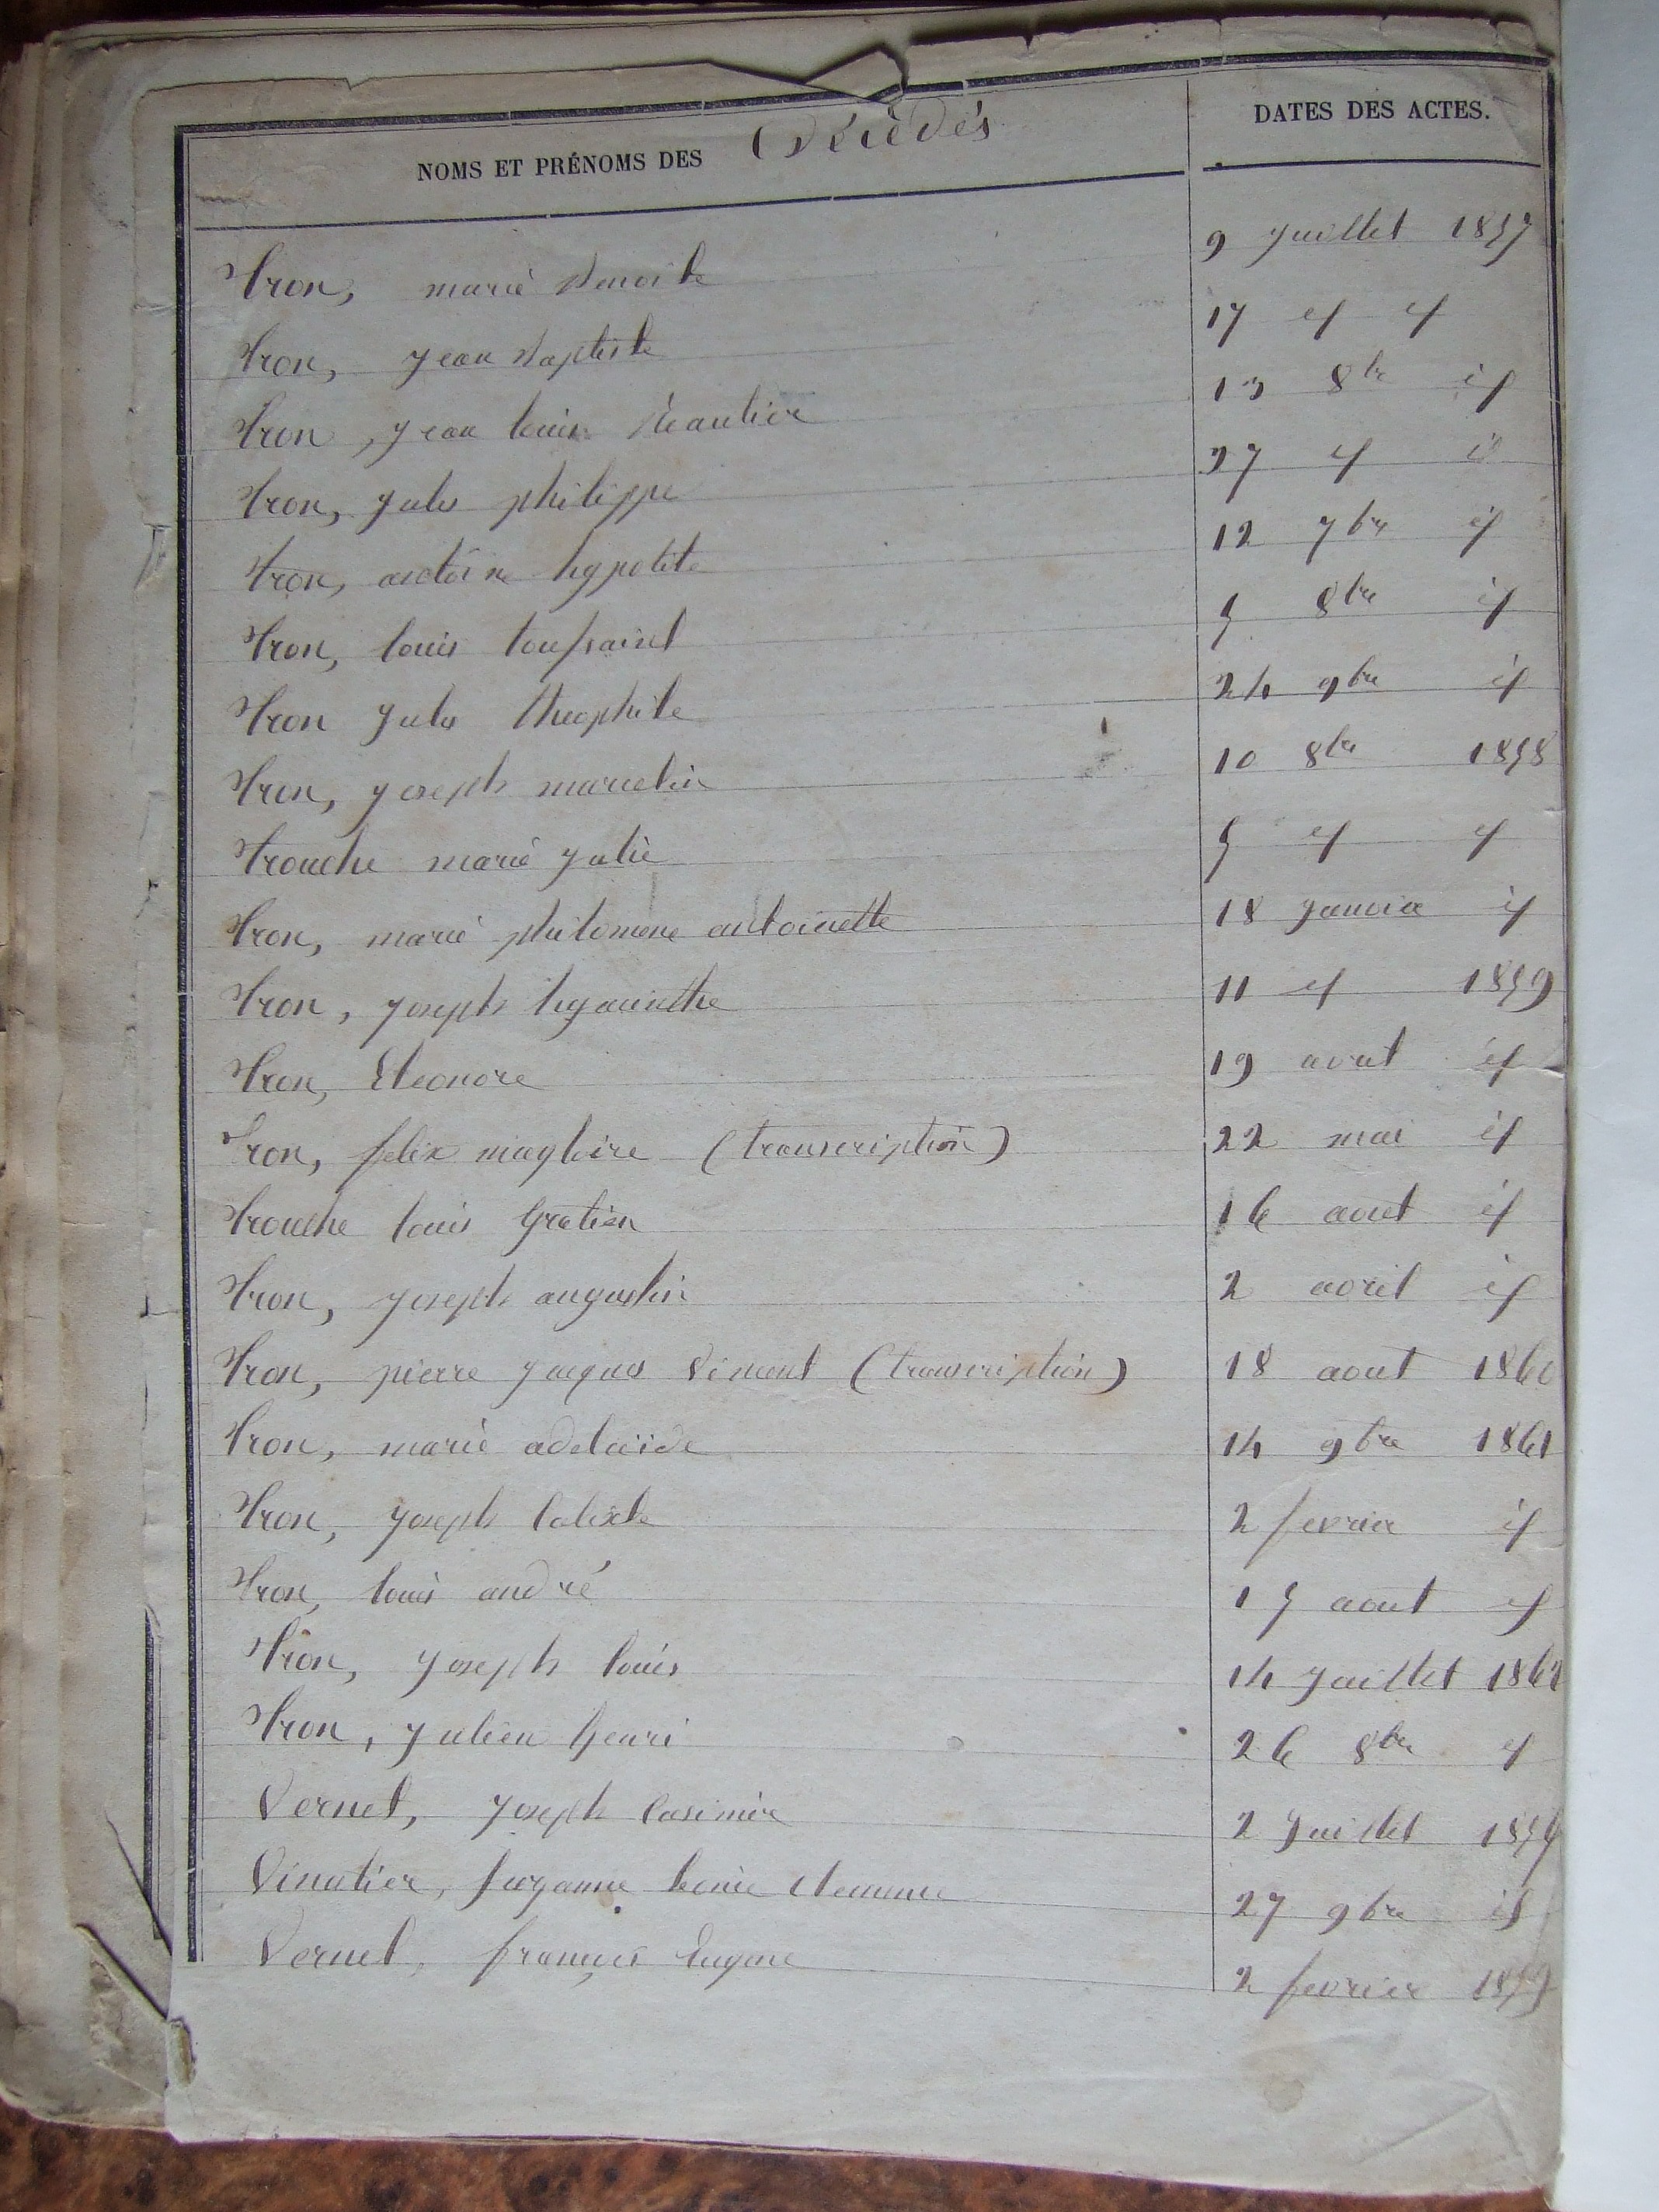 NOMS ET PRÉNOMS DES Décèdés DATES DES ACTES.
Tron, marie Benoite 9 juillet 1857
Tron, jean Baptiste 17 id id
Tron, jean louis 13 8bre id
Tron, jules philippe 27 id id
Tron, antoine hypolite 12 7bre id
Tron, louis toussaint 5 8bre id
Tron jules theophile 24 9bre id
Tron, joseph marcelin 10 8bre 1858
Trouche marie julie 5 id id
Tron, marie philomene antoinette 18 janvier id
Tron, joseph hyacinthe 11 id 1859
Tron, Eleonore 19 avril id
Tron, felix magloire (transcription) 22 mai id
Trouche louis Gratien 16 aout id
Tron, joseph augustin 2 avril id
Tron, pierre jacques Vincent (transcription) 18 aout 1860
Tron, marie adelaide 14 9bre 1861
Tron, joseph Calixte 2 fevrier id
Tron, louis andré 15 aout id
Tron, joseph louis 14 juillet 1862
Tron, julien henri 26 8bre id
Vernet, joseph Casimir 2 juillet
Vinatier, suzanne 27 9bre id
Vernet, françois Eugene 2 fevrier 1859